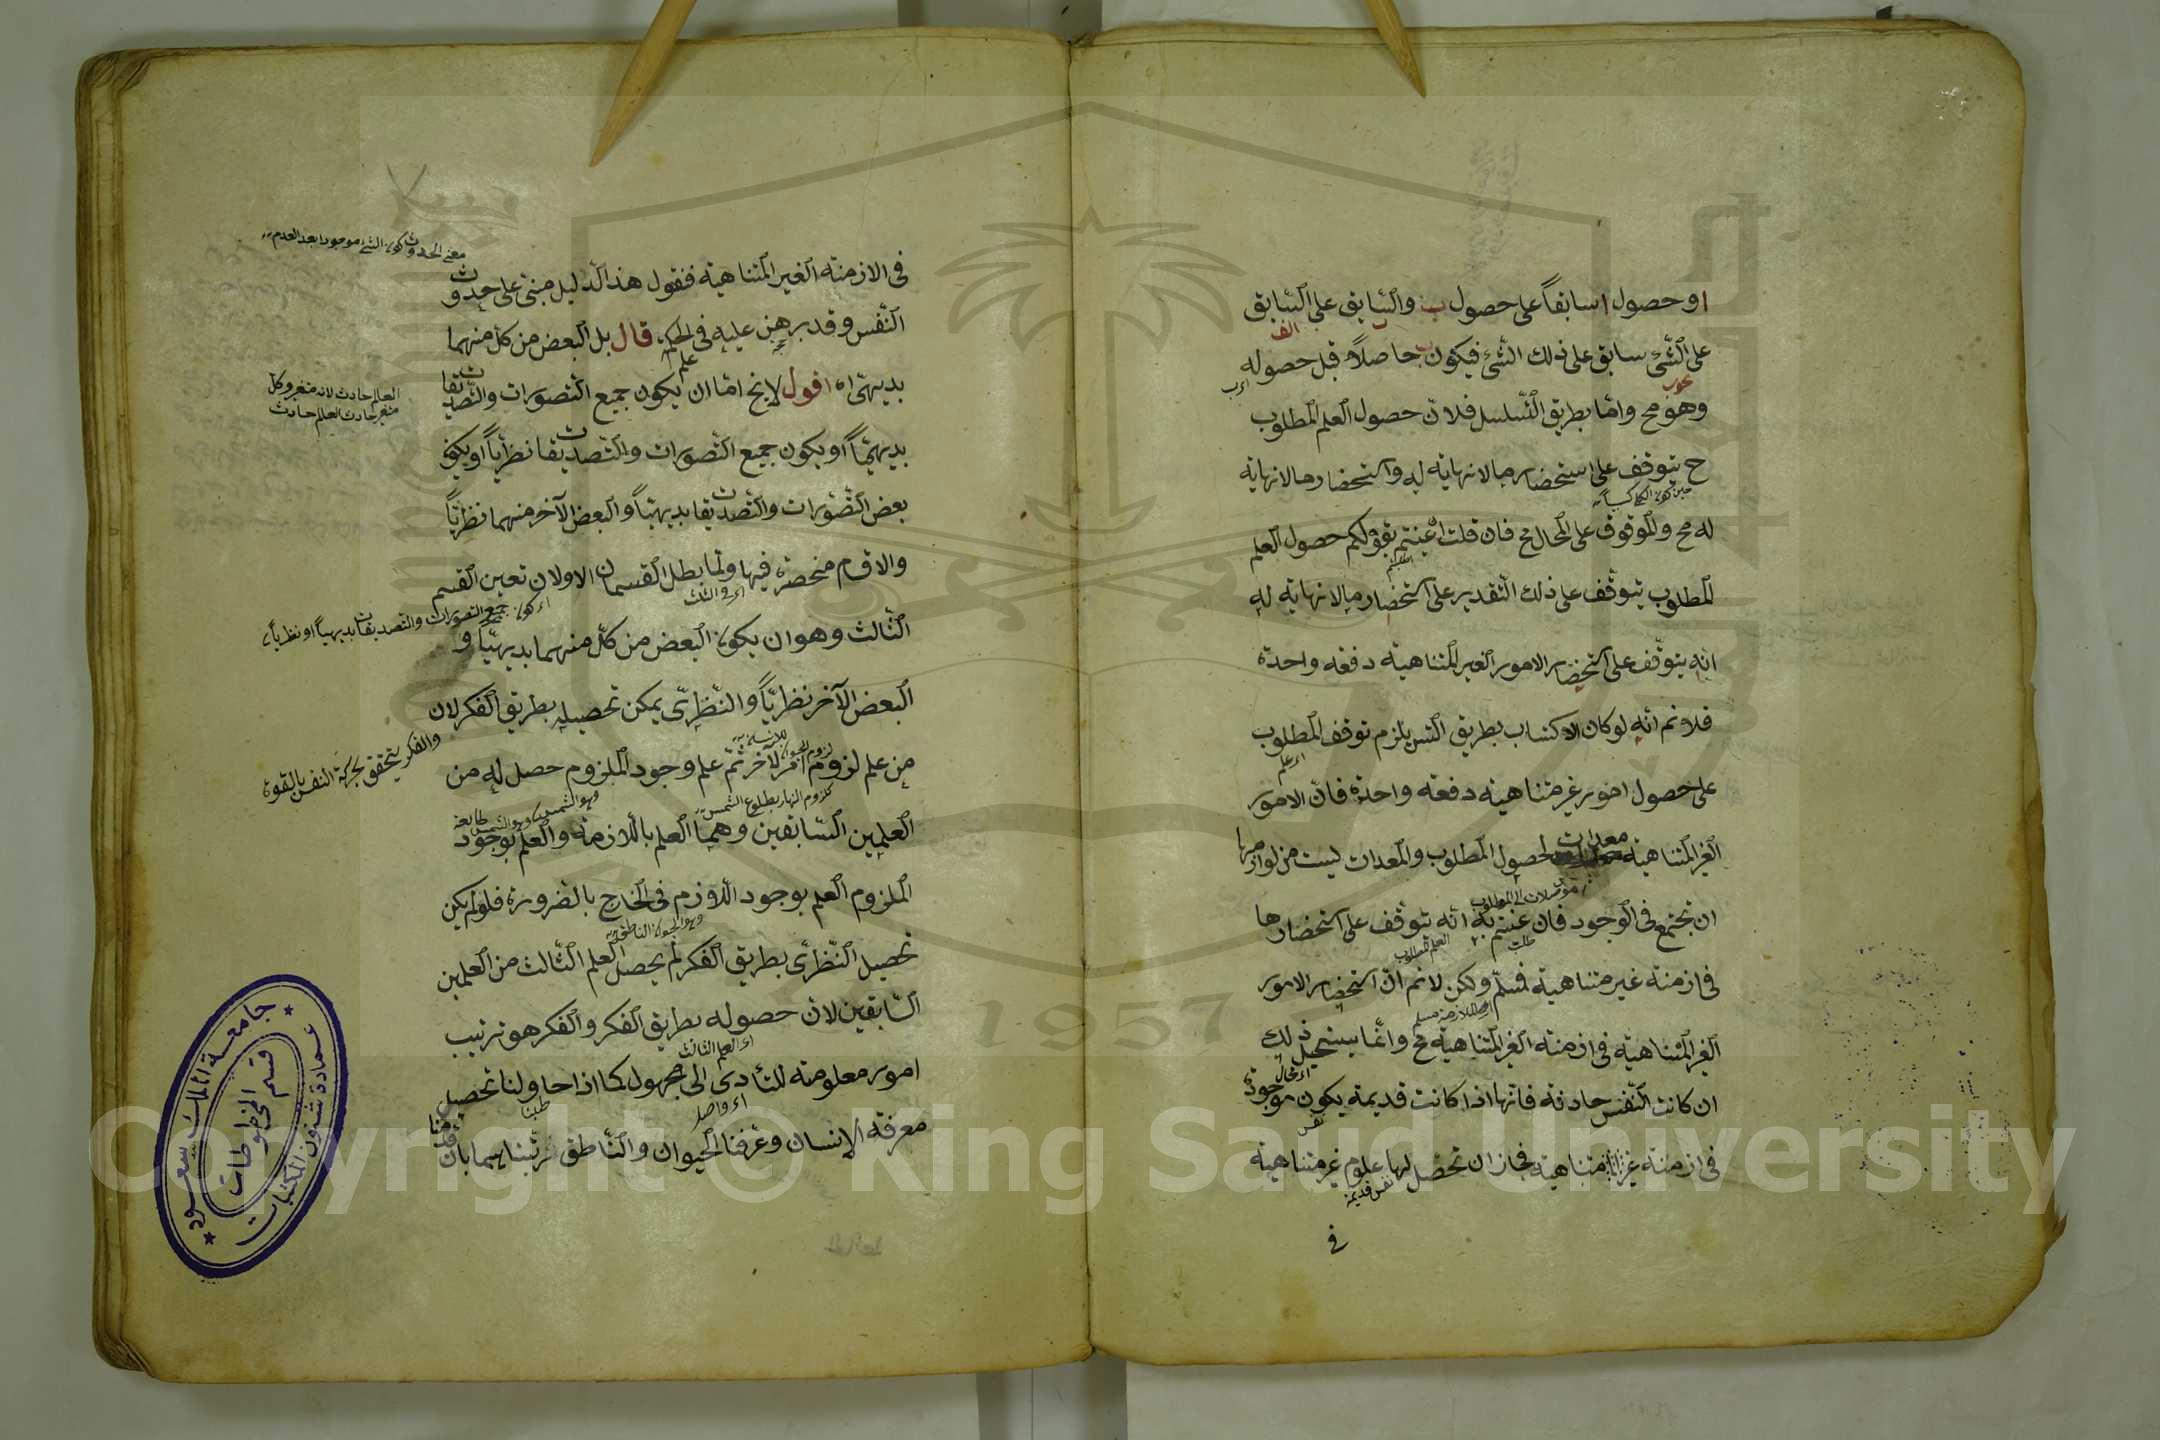 او حصول ا سابقاً على حصول ب والسابق على السابق
على الشئ سابق على ذلك الشئ فيكون ب حاصلاً قبل حصوله
وهو مح واما بطريق التسلسل فلان حصول العلم المطلوب
ح يتوقف على استحضار مالانهاية له واستحضار مالانهاية
له مح والموقوف على المحال مح فان قلت ان عنيتم بقولكم حصول العلم
المطلوب يتوقف على ذلك التقدير على استحضار مالانهاية له
انه يتوقف على استحضار الامور الغير المتناهية دفعة واحدة
فلانم انه لو كان الاكتساب بطريق التس يلزم توقف المطلوب
على حصول امور غير متناهية دفعة واحدة فان الامور
الغير المتناهية معدات لحصول المطلوب والمعدات ليست من لوازمها
ان تجتمع فى الوجود فان عنيتم به انه يتوقف على استحضارها
فى ازمنة غير متناهية فمسلم ولكن لانم ان استحضار الامور
الغير المتناهية فى ازمنة الغير المتناهية مح وانما يستحيل ذلك
ان كانت النفس حادثة فانها اذا كانت قديمة يكون موجودة
فى ازمنة غير متناهية فجاز ان تحصل لها علوم غير متناهية
نفس قديمة
فى
معنى الحدوث كون الشئ موجودا بعد العدم
فى الازمنة الغير المتناهية فنقول هذا الدليل مبنى على حدوث
النفس وقد برهن عليه فى الحكم قال بل البعض من كل منهما
بديهى اه اقول لايخ اما ان يكون جميع التصورات والتصديقات
العالم حادث لانه متغير وكل
متغير حادث العالم حادث
بديهياً او يكون جميع التصورات والتصديقات نظرياً او يكون
بعض التصورات والتصديقات بديهياً والبعض الآخر منهما نظرياً
والاقسام منحصرة فيها ولما بطل القسمان الاولان تعين القسم
اى كون جميع التصورات والتصديقات بديهياً او نظرياً
الثالث وهو ان يكون البعض من كل منهما بديهياً و
البعض الآخر نظرياً والنظرى يمكن تحصيله بطريق الفكر لان
والفكر يتحقق بحركة النفس بالقوة
من علم لزوم امر لآخر ثم علم وجود الملزوم حصل له من
كلزوم النهار بطلوع الشمس
العلمين السابقين وهما العلم بالملازمة والعلم بوجود
الملزوم العلم بوجود اللازم فى الخارج بالضرورة فلو لم يكن
تحصيل النظرى بطريق الفكر لم يحصل العلم الثالث من العلمين
السابقين لان حصوله بطريق الفكر والفكر هو ترتيب
اى العلم الثالث
امور معلومة للتأدى الى مجهول كما اذا حاولنا تحصيل
معرفة الانسان وعرفنا الحيوان والناطق رتبناهما بان قدمنا
جامعة الملك سعود
عمادة شئون المكتبات
قسم المخطوطات
1957
Copyright © King Saud University